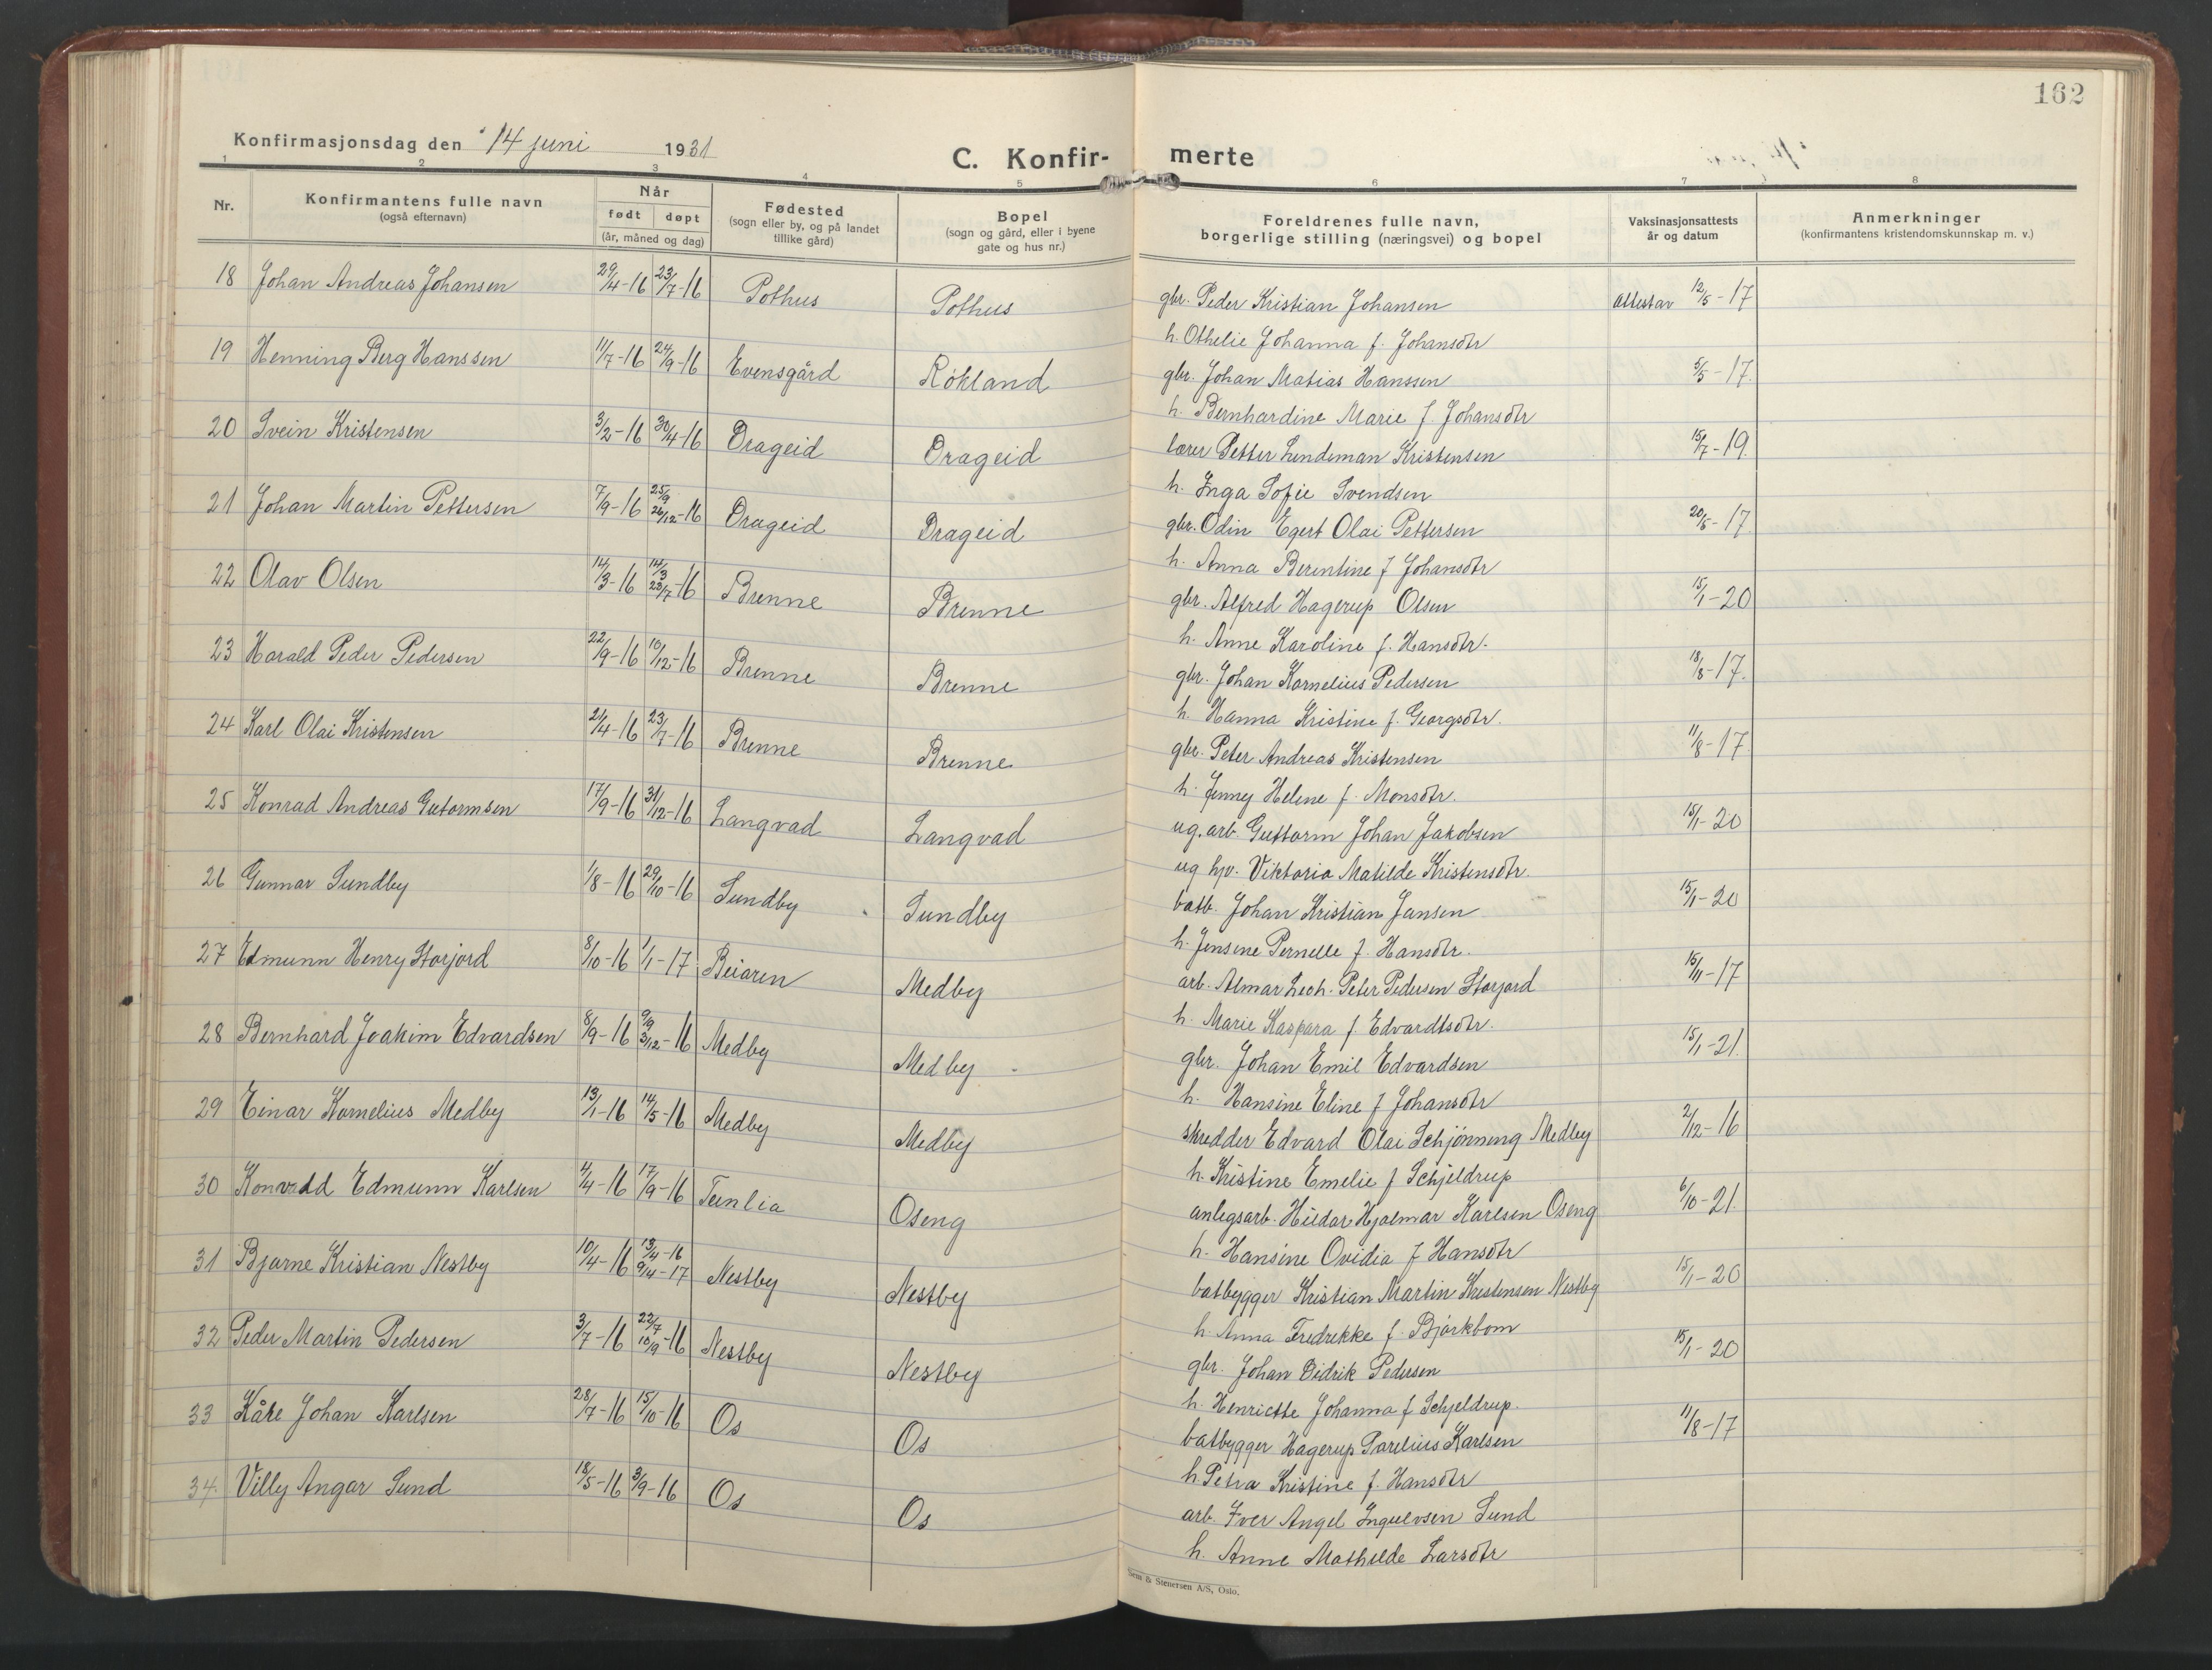 162
Konfirmasjonsdag den 14 juni 1931
C. Konfir- merte
1 2 3 4 5 6 7 8
Nr.
Konfirmantens fulle navn
(også efternavn)
Når
født døpt
(år, måned og dag)
Fødested
(sogn eller by, og på landet
tillike gård)
Bopel
(sogn og gård, eller i byene
gate og hus nr.)
Foreldrenes fulle navn,
borgerlige stilling (næringsvei) og bopel
Vaksinasjonsattests
år og datum
Anmerkninger
(konfirmantens kristendomskunnskap m. v.)
18 Johan Andreas Johansen 29/4-16 23/7-16 Pothus Pothus gbr. Peder Kristian Johansen attestav 12/5-17
h. Othelie Johanna f. Johansdtr
19 Henning Berg Hanssen 11/7-16 24/9-16 Evensgård Rökland gbr. Johan Matias Hanssen 5/5-17.
h. Bernhardine Marie f. Johansdtr
20 Svein Kristensen 3/2-16 30/4-16 Drageid Drageid lærer Petter Lindeman Kristensen 15/7-19.
h. Inga Sofie Svendsen
21 Johan Martin Pettersen 7/9-16 25/9 26/12-16 Drageid Drageid gbr. Odin Egert Olai Pettersen 20/5-17.
h. Anna Berentine f Johansdtr
22 Olav Olsen 14/3-16 14/3 23/7-16 Brenne Brenne gbr. Alfred Hagerup Olsen 15/1-20
h. Anne Karoline f. Hansdtr.
23 Harald Peder Pedersen 22/9-16 10/12-16 Brenne Brenne gbr. Johan Kornelius Pedersen 18/8-17.
h. Hanna Kristine f. Georgsdtr.
24 Karl Olai Kristensen 21/4-16 23/7-16 Brenne Brenne gbr. Peter Andreas Kristensen 11/8-17.
h. Jenny Helene f. Monsdtr.
25 Konrad Andreas Gutormsen 17/9-16 31/12-16 Langvad Langvad ug. arb. Guttorm Johan Jakobsen 15/1-20
ug hjv. Viktoria Matilde Kristensdtr.
26 Gunnar Sundby 1/8-16 29/10-16 Sundby Sundby batb. Johan Kristian Jansen 15/1-20
h. Jensine Pernelle f. Hansdtr.
27 Edmunn Henry Storjord 8/10-16 1/1-17 Beiaren Medby arb. Almar Zech. Peter Pedersen Storjord 15/11-17
h. Marie Kaspara f. Edvardtsdtr.
28 Bernhard Joakim Edvardsen 8/9-16 9/9 3/12-16 Medby Medby gbr. Johan Emil Edvardsen 15/1-21.
h. Hansine Eline f Johansdtr
29 Einar Kornelius Medby 13/1-16 14/5-16 Medby Medby skredder Edvard Olai Schjönning Medby 2/12-16
h. Kristine Emelie f Schjeldrup
30 Konvald Edmunn Karlsen 4/4-16 17/9-16 Tunlia Oseng anlegsarb. Hildar Hjalmar Karlsen Oseng 6/10-21.
h. Hansine Ovidia f Hansdtr
31 Bjarne Kristian Nestby 10/4-16 13/4-16 9/4-17 Nestby Nestby batbygger Kristian Martin Kristensen Nestby 15/1-20
h. Anna Fredrekke f. Bjørkbom
32 Peder Martin Pedersen 3/7-16 22/7 10/9-16 Nestby Nestby gbr. Johan Didrik Pedersen 15/1-20
h. Henriette Johanna f Schjeldrup.
33 Kåre Johan Karlsen 28/7-16 15/10-16 Os Os batbygger Hagerup Parelius Karlsen 11/8-17
h Petra Kristine f. Hansdtr
34. Villy Angar Sund 18/5-16 3/9-16 Os Os arb. Iver Angel Ingulvsen Sund
h. Anne Mathilde Larsdtr
Sem & Stenersen A/S, Oslo.